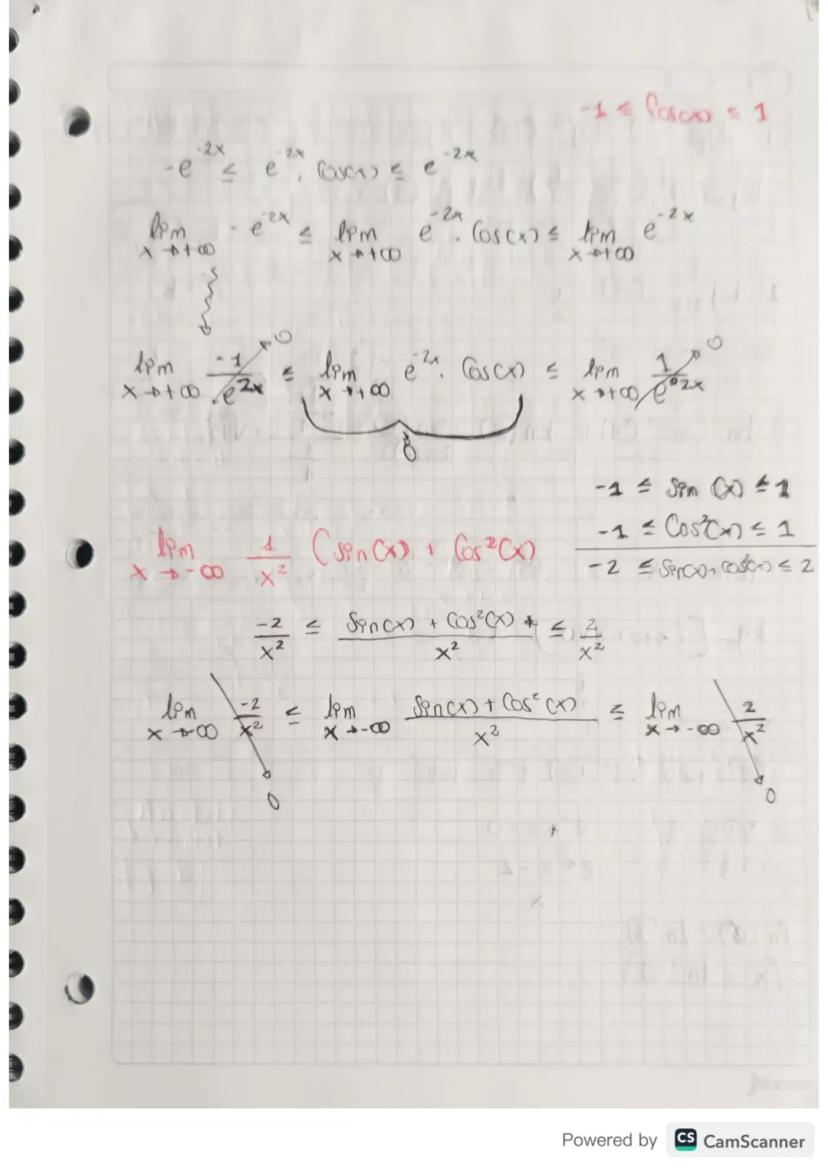 -1 ≤ Cos(x) ≤ 1
-e^-2x ≤ e^-2x . Cos(x) ≤ e^-2x
lim x→+∞ -e^-2x ≤ lim x→+∞ e^-2x . Cos(x) ≤ lim x→+∞ e^-2x
lim x→+∞ -1/e^2x → 0 ≤ lim x→+∞ e^-2x . Cos(x) ≤ lim x→+∞ 1/e^2x → 0
0
-1 ≤ Sin (x) ≤ 1
-1 ≤ Cos²(x) ≤ 1
-2 ≤ Sin(x)+Cos²(x) ≤ 2
lim x→-∞ 1/x² (Sin(x) + Cos²(x)
-2/x² ≤ Sin(x) + Cos²(x)/x² ≤ 2/x²
lim x→-∞ -2/x² ≤ lim x→-∞ Sin(x) + Cos²(x)/x² ≤ lim x→-∞ 2/x²
0 0
Powered by CS CamScanner